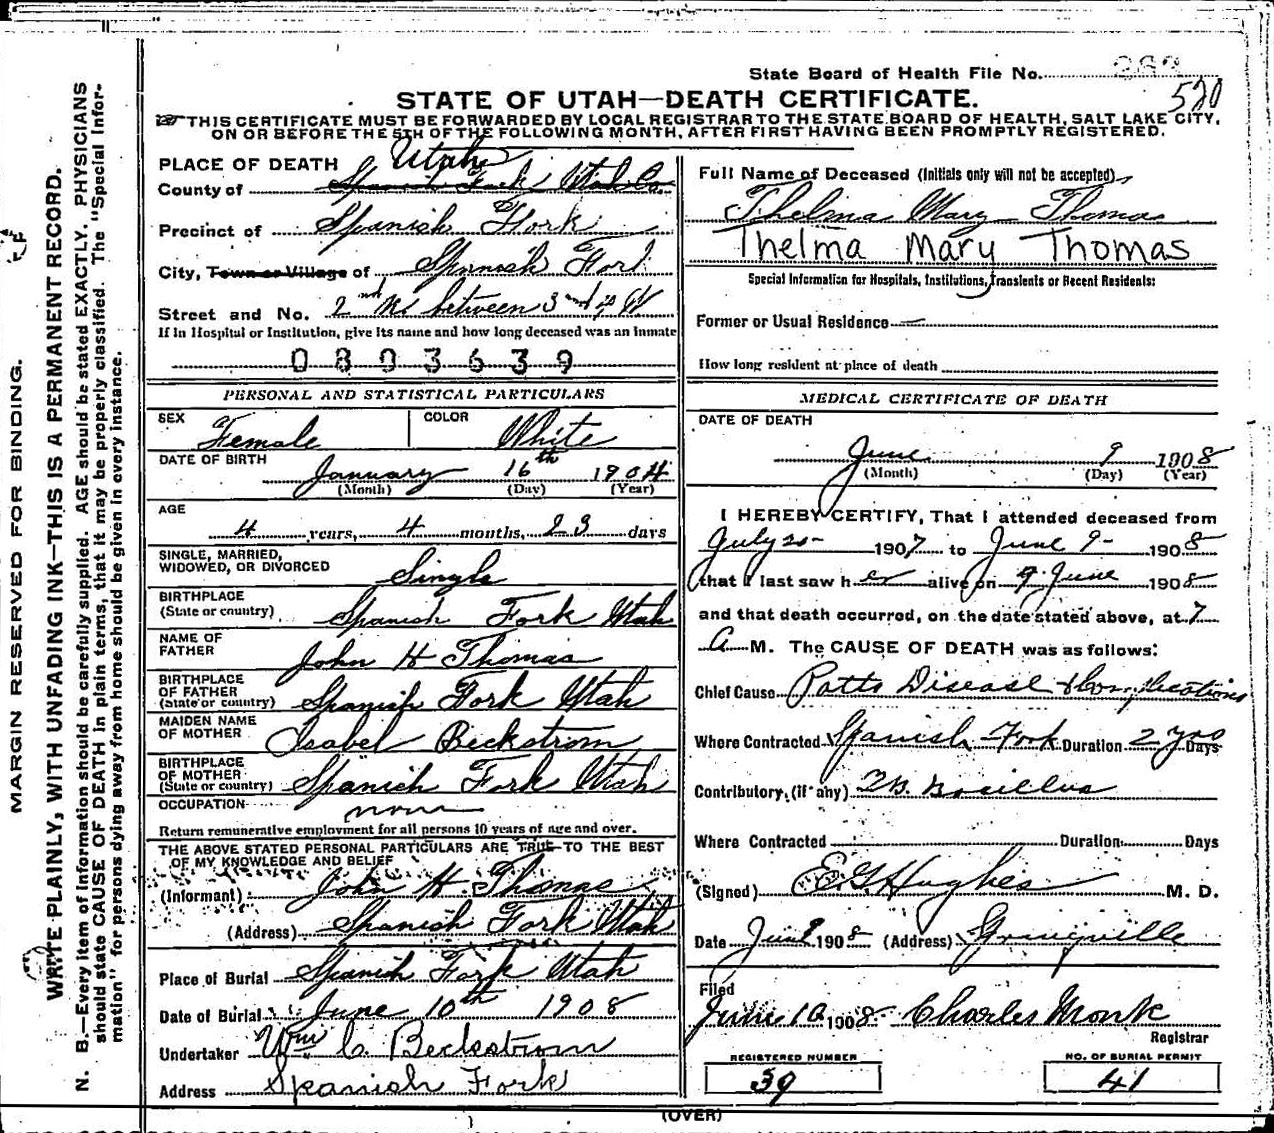 State Board of Health File No. 263
520
STATE OF UTAH—DEATH CERTIFICATE.
THIS CERTIFICATE MUST BE FORWARDED BY LOCAL REGISTRAR TO THE STATE BOARD OF HEALTH, SALT LAKE CITY,
ON OR BEFORE THE 5TH OF THE FOLLOWING MONTH, AFTER FIRST HAVING BEEN PROMPTLY REGISTERED.
MARGIN RESERVED FOR BINDING.
WRITE PLAINLY, WITH UNFADING INK—THIS IS A PERMANENT RECORD.
N. B.—Every item of information should be carefully supplied. AGE should be stated EXACTLY. PHYSICIANS
should state CAUSE OF DEATH in plain terms, that it may be properly classified. The "Special Infor-
mation" for persons dying away from home should be given in every instance.
PLACE OF DEATH Utah
County of Spanish Fork Utah Co.
Precinct of Spanish Fork
City, Town or Village of Spanish Fork
Street and No. 2nd N. between 3rd W
If in Hospital or Institution, give its name and how long deceased was an inmate
0803639
PERSONAL AND STATISTICAL PARTICULARS
SEX Female COLOR White
DATE OF BIRTH January 16th 1904
(Month) (Day) (Year)
AGE 4 years, 4 months, 23 days
SINGLE, MARRIED,
WIDOWED, OR DIVORCED Single
BIRTHPLACE
(State or country) Spanish Fork Utah
NAME OF
FATHER John H Thomas
BIRTHPLACE
OF FATHER
(State or country) Spanish Fork Utah
MAIDEN NAME
OF MOTHER Isabel Beckstrom
BIRTHPLACE
OF MOTHER
(State or country) Spanish Fork Utah
OCCUPATION none
Return remunerative employment for all persons 10 years of age and over.
THE ABOVE STATED PERSONAL PARTICULARS ARE TRUE TO THE BEST
OF MY KNOWLEDGE AND BELIEF
(Informant) John H. Thomas
(Address) Spanish Fork Utah
Place of Burial Spanish Fork Utah
Date of Burial June 10th 1908
Undertaker Wm C. Beckstrom
Address Spanish Fork
Full Name of Deceased (Initials only will not be accepted)
Thelma Mary Thomas
Thelma Mary Thomas
Special Information for Hospitals, Institutions, Transients or Recent Residents:
Former or Usual Residence
How long resident at place of death
MEDICAL CERTIFICATE OF DEATH
DATE OF DEATH
June 9 1908
(Month) (Day) (Year)
I HEREBY CERTIFY, That I attended deceased from
July 20- 1907 to June 9- 1908
that I last saw her alive on 9 June 1908
and that death occurred, on the date stated above, at 7
A M. The CAUSE OF DEATH was as follows:
Chief Cause Potts Disease & Complications
Where Contracted Spanish Fork Duration 2 yrs Days
Contributory, (if any) T.B. Bacillus
Where Contracted Duration Days
(Signed) E G Hughes M. D.
Date June 9 1908 (Address) Springville
Filed
June 10 1908 Charles Monk
Registrar
REGISTERED NUMBER
39
NO. OF BURIAL PERMIT
41
(OVER)